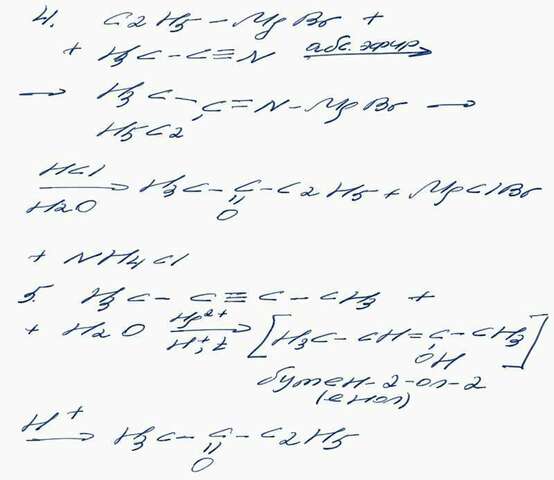 4. C2H5-MgBr +
+ H3C-C≡N абс. эфир →
→ H3C-C=N-MgBr →
H5C2
HCl
H2O → H3C-C-C2H5 + MgClBr
O
+ NH4Cl
5. H3C-C≡C-CH3 +
+ H2O Hg2+ → [H3C-CH=C-CH3]
H+, t OH
бутен-2-ол-2
(енол)
H+ → H3C-C-C2H5
O